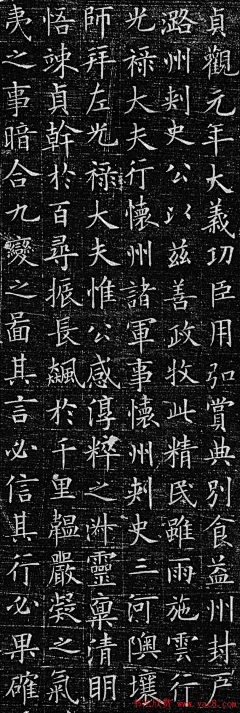 貞觀元年大義功臣用弘賞典別食益州封户
潞州刾史公以茲善政牧此精民雖雨施雲行
光禄大夫行懷州諸軍事懷州刾史三河隩壤
師拜左光禄大夫惟公感淳粹之靈稟清明
悟竦貞幹於百尋振長飆於千里韞嚴凝之氣
夷之事暗合九變之啚其言必信其行必果確
书法欣赏 www.yac8.com